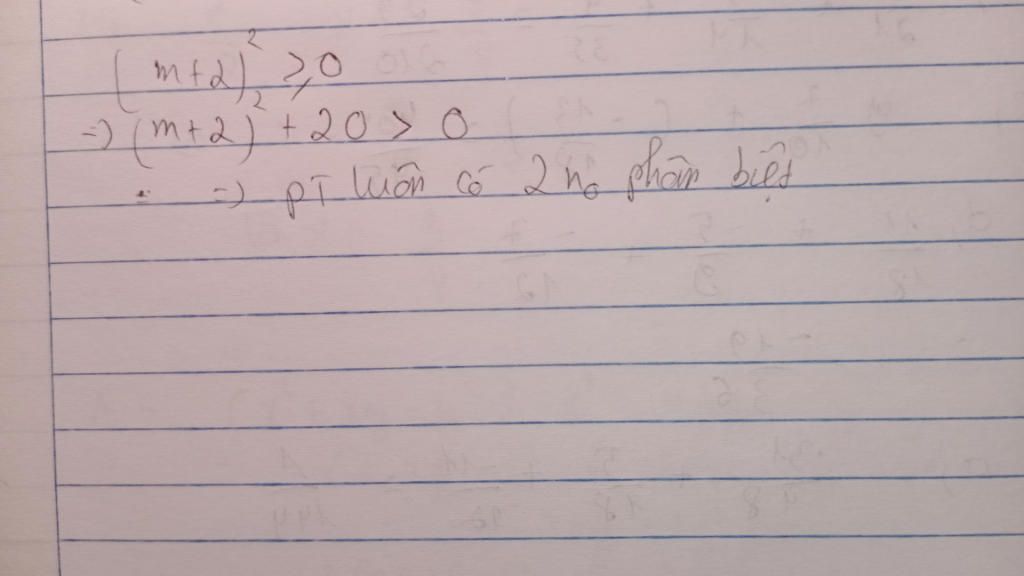 (m+2)² ≥ 0
=> (m+2)² + 20 > 0
=> pT luôn có 2 no phân biệt